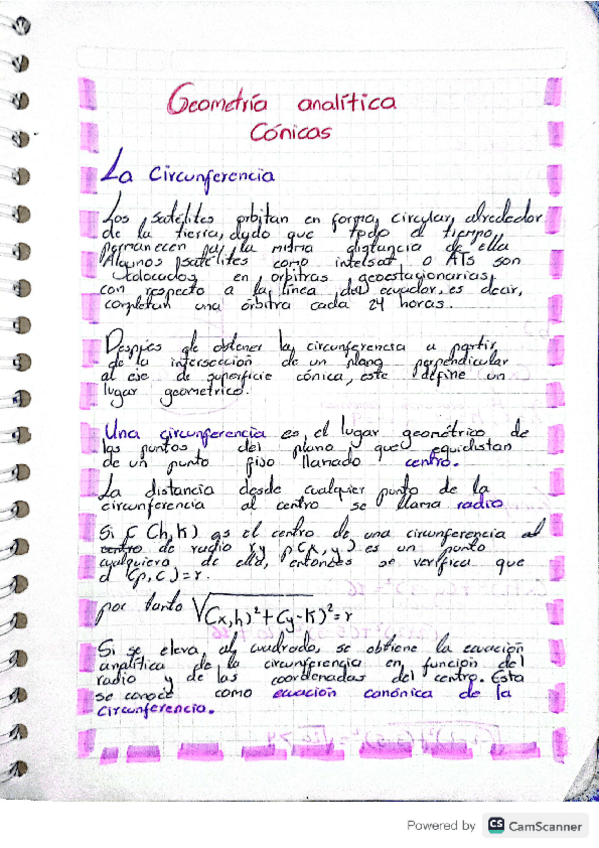 Geometría analítica
Cónicas
La Circunferencia
Los satélites orbitan en forma circular, alrededor
de la tierra, dado que todo el tiempo,
permanecen a la misma distancia de ella
Algunos satélites como intelsat o ATs son
colocados en orbitras geoestacionarias,
con respecto a la línea del ecuador, es decir,
completan una órbitra cada 24 horas.
Despues de obtener la circunferencia a partir
de la intersección de un plano perpendicular
al eje de superficie cónica, este define un
lugar geometrico.
Una circunferencia es el lugar geométrico de
los puntos del plano que equidistan
de un punto fijo llamado centro.
La distancia desde cualquier punto de la
circunferencia al centro se llama radio
Si C Ch, K) es el centro de una circunferencia al
centro de radio r y p(x, y) es un punto
cualquiera de ella, entonces se verifica que
d (p, C) = r.
por tanto √(x,h)²+(y-k)²=r
Si se eleva, al cuadrado, se obtiene la ecuación
analítica de la circunferencia en función del
radio y de las coordenadas del centro. Esta
se conoce como ecuación canónica de la
circunferencia.
Powered by CS CamScanner